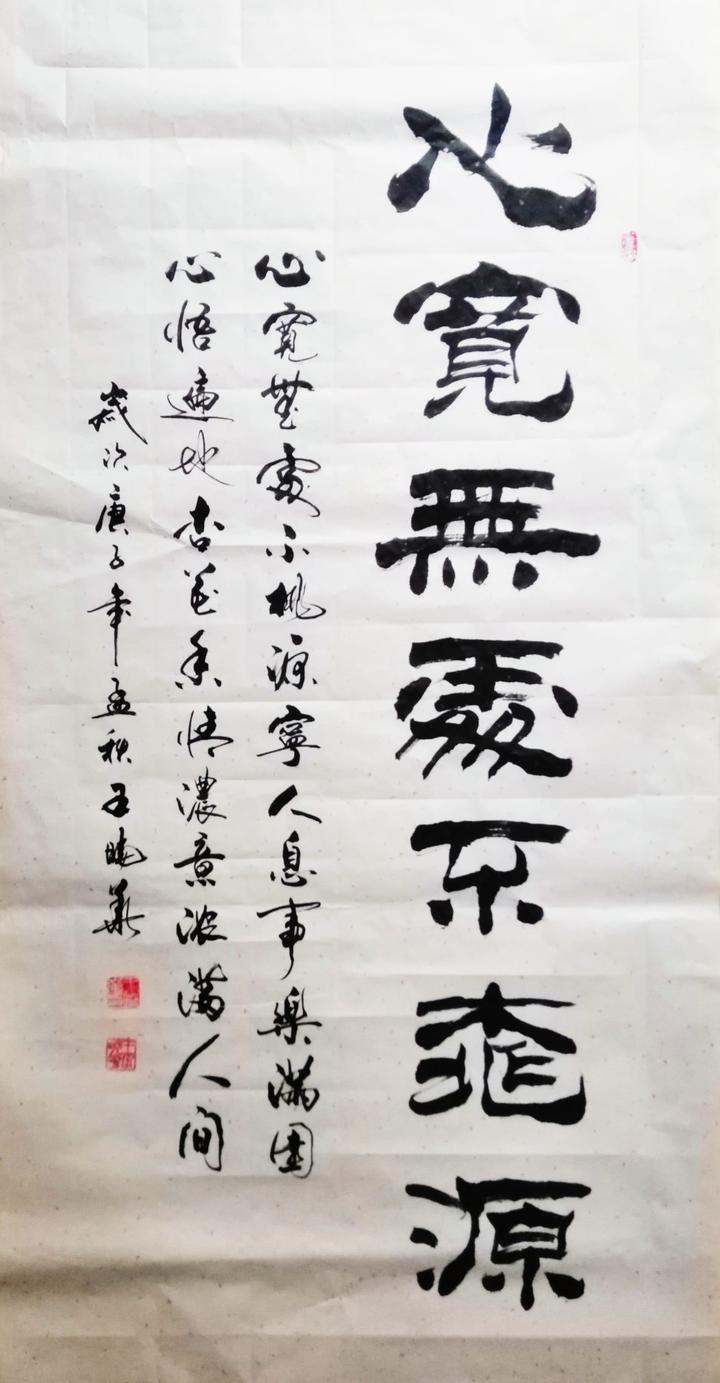 心寬無處不桃源
心寬無處不桃源寧人息事樂滿園
心悟遍地杏花香情濃意濃滿人间
歲次庚子年孟秋王曉華